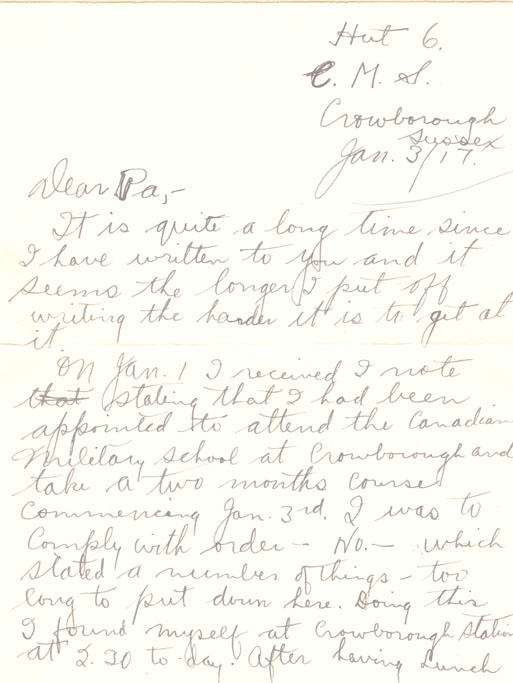 Hut 6.
C. M. S.
Crowborough
Sussex
Jan. 3/17.
Dear Pa,-
It is quite a long time since
I have written to you and it
seems the longer I put off
writing the harder it is to get at
it.
On Jan. 1 I received I note
that stating that I had been
appointed to attend the Canadian
Military school at Crowborough and
take a two months course
commencing Jan. 3rd. I was to
comply with order - No. - which
stated a number of things - too
long to put down here. Doing this
I found myself at Crowborough Station
at 2.30 to-day. After having lunch